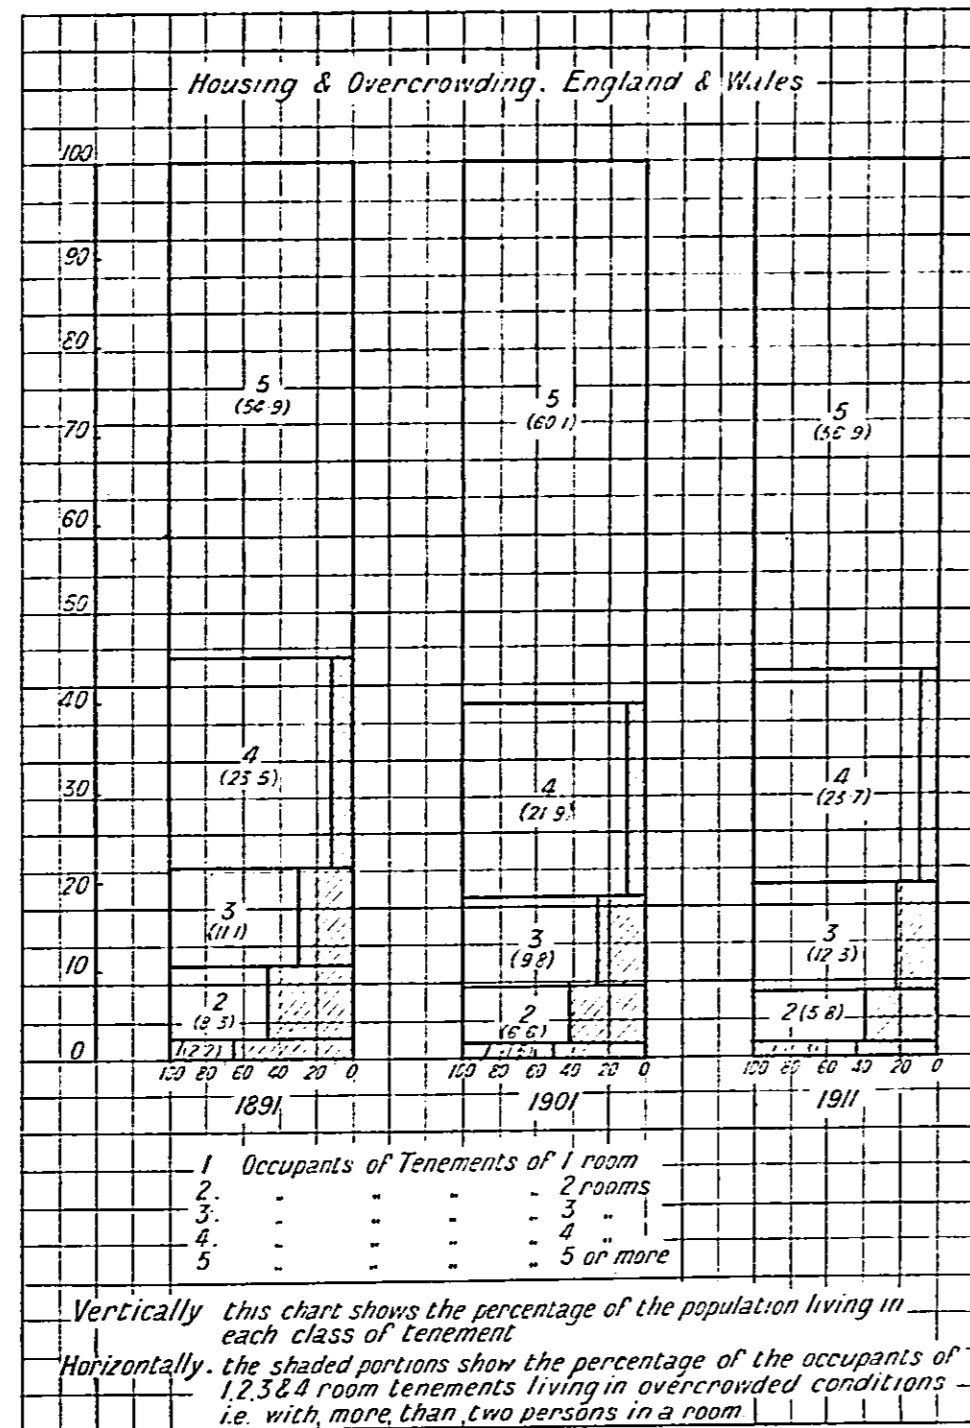 Housing & Overcrowding. England & Wales
100
90
80
70
60
50
40
30
20
10
0
5
(54.9)
4
(23.5)
3
(11.1)
2
(8.3)
100 80 60 40 20 0
1891
5
(60.1)
4
(21.9)
3
(9.8)
2
(6.6)
100 80 60 40 20 0
1901
5
(56.9)
4
(23.7)
3
(12.3)
2 (5.8)
100 80 60 40 20 0
1911
1 Occupants of Tenements of 1 room
2. " " " " 2 rooms
3. " " " " 3 "
4. " " " " 4 "
5 " " " " 5 or more
Vertically this chart shows the percentage of the population living in
each class of tenement
Horizontally. the shaded portions show the percentage of the occupants of
1,2,3 & 4 room tenements living in overcrowded conditions
i.e. with more than two persons in a room